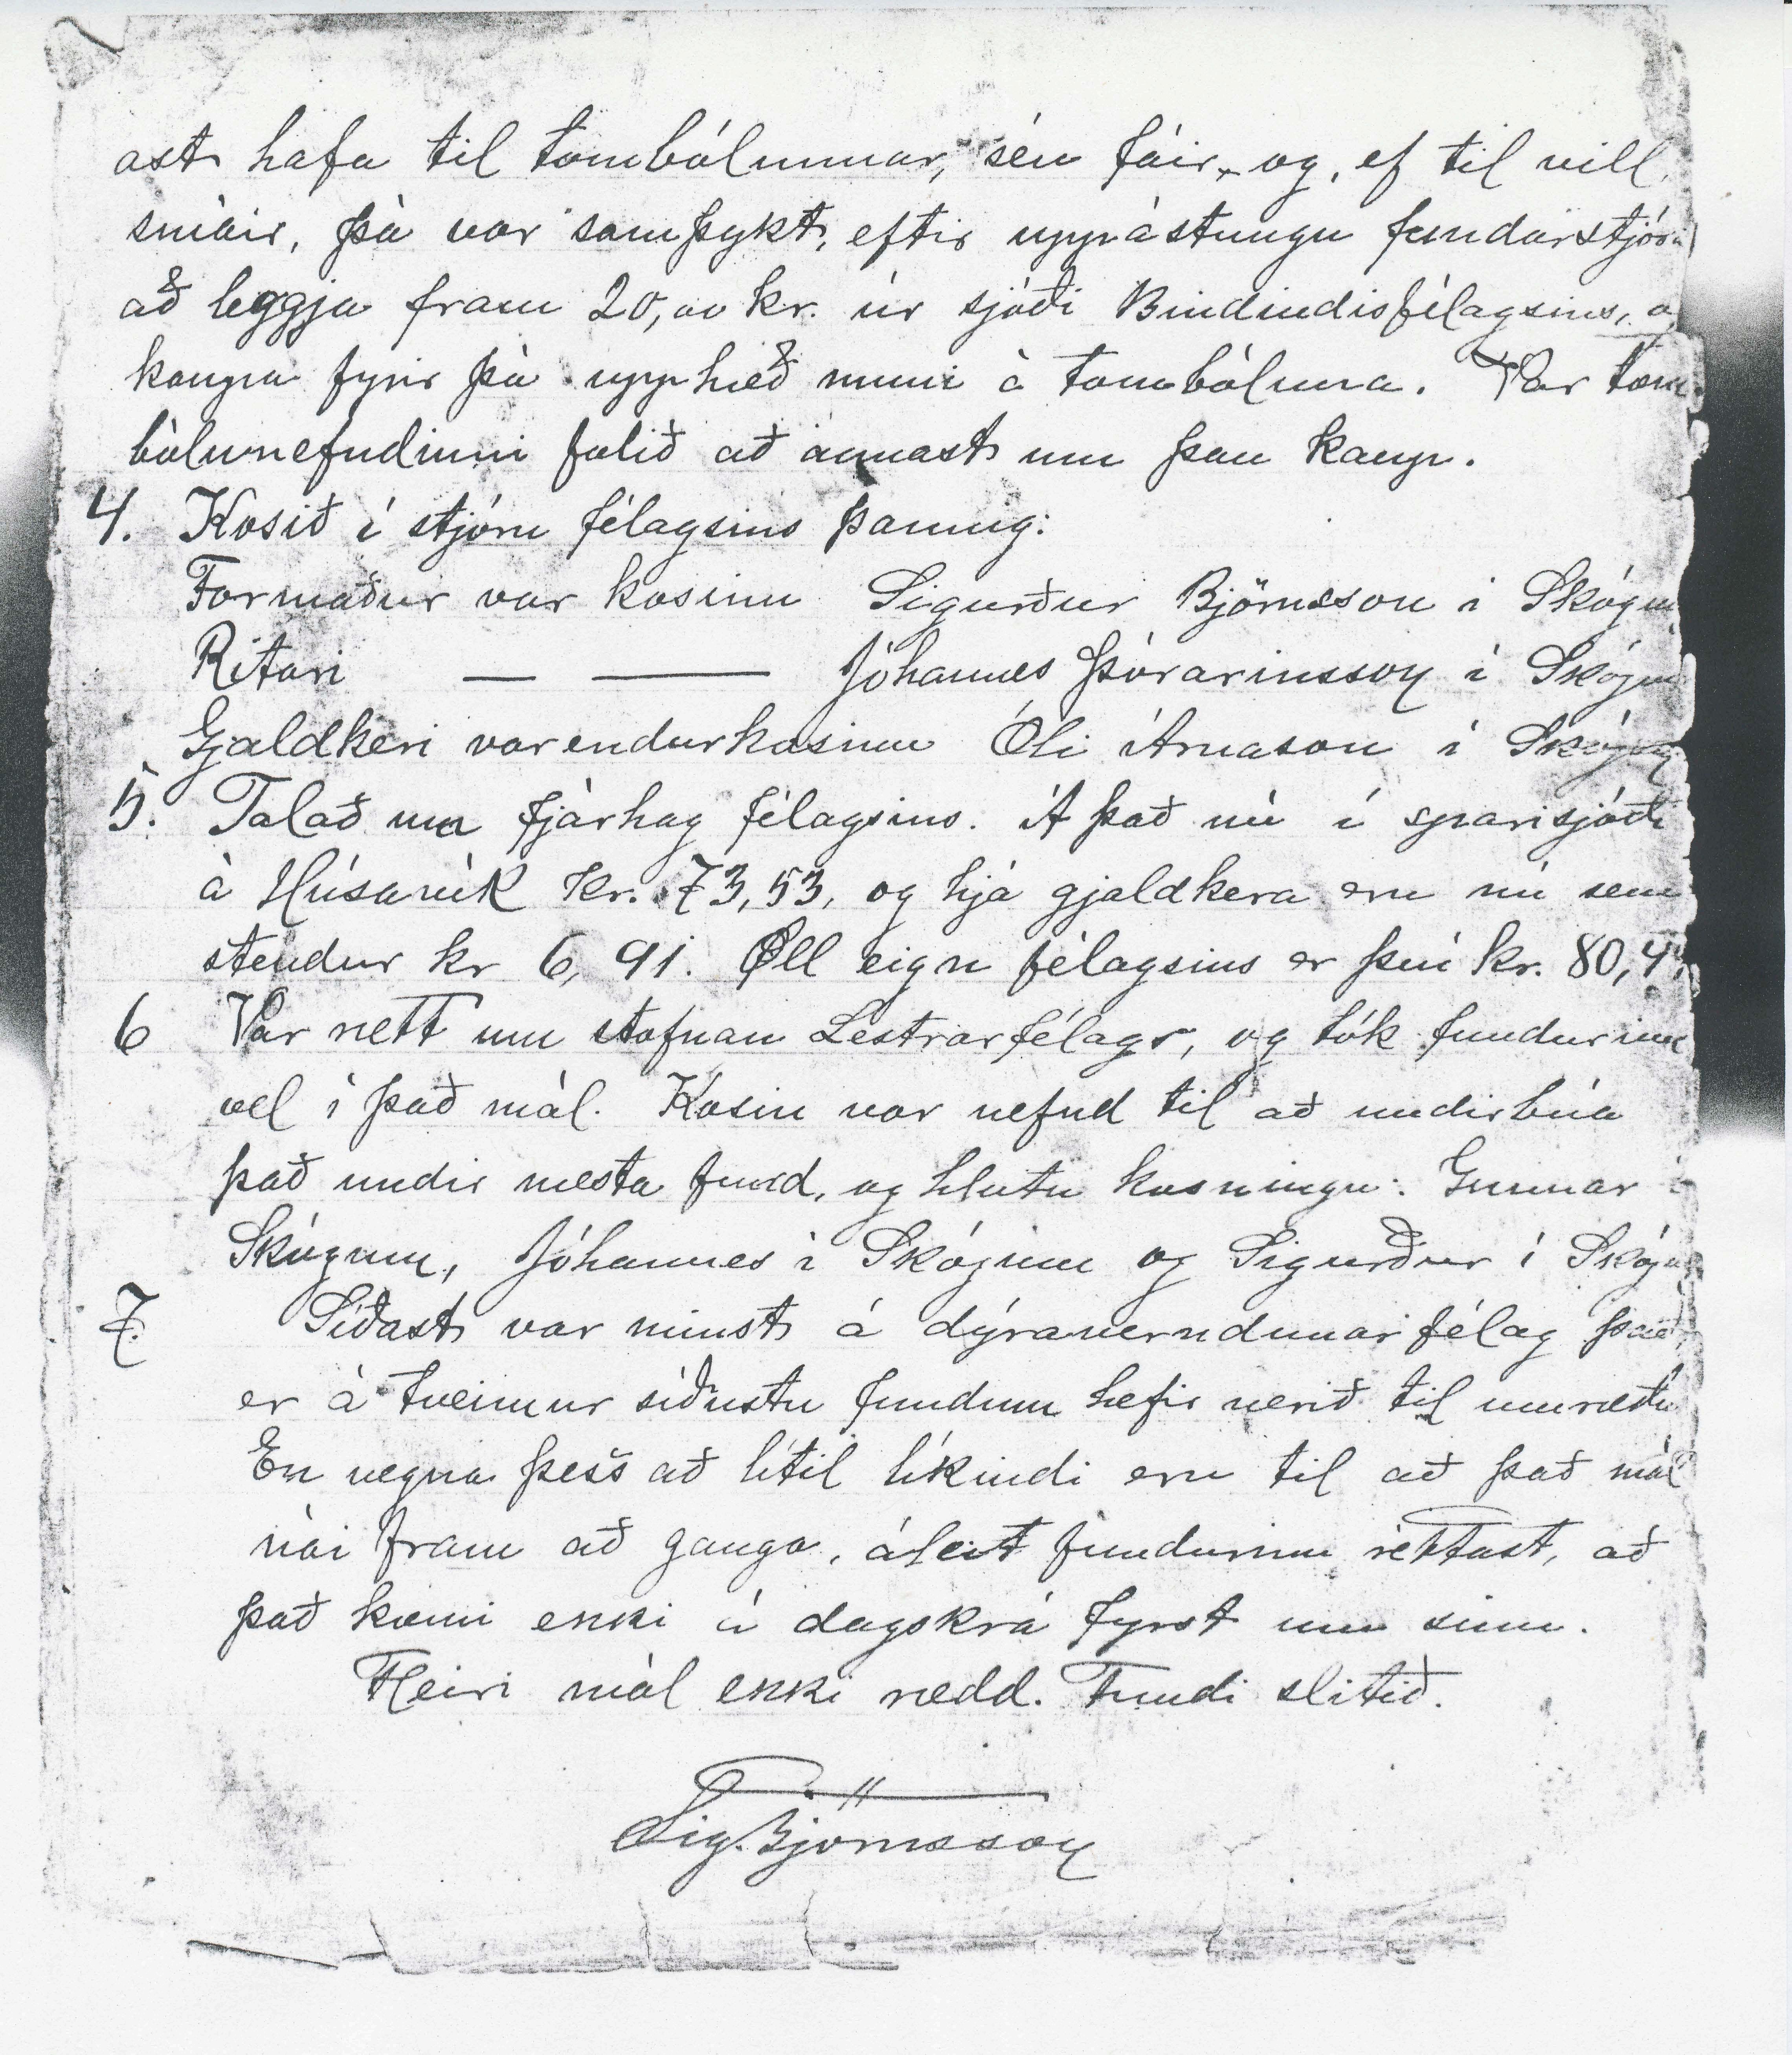 ast hafa til tombólunnar, séu fáir, og, ef til vill,
smáir, þá var samþykt, eftir uppástungu fundarstjóra
að leggja fram 20,00 kr. úr sjóði Bindindisfélagsins, og
kaupa fyrir þá upphæð muni á tombóluna. Var tom
bólunefndinni falið að annast um þau kaup.
4. Kosið í stjórn félagsins þannig:
Formaður var kosinn Sigurður Björnsson í Skógum
Ritari — — Jóhannes Þórarinsson í Skógum
Gjaldkeri var endurkosinn Óli Árnason í Skógum
5. Talað um fjárhag félagsins. Á það nú í sparisjóði
á Húsavík kr. 73,53, og hjá gjaldkera eru nú sem
stendur kr 6,91. Öll eign félagsins er því kr. 80,4
6 Var rætt um stofnan Lestrarfélags, og tók fundurinn
vel í það mál. Kosin var nefnd til að undirbúa
það undir næsta fund, og hlutu kosningu: Gunnar í
Skógum, Jóhannes í Skógum og Sigurður í Skógum
7. Síðast var minst á dýraverndunarfélag það,
er á tveimur síðustu fundum hefir verið til umræðu
En vegna þess að lítil líkindi eru til að það mál
nái fram að ganga, áleit fundurinn réttast, að
það komi ekki á dagskrá fyrst um sinn.
Fleiri mál ekki rædd. Fundi slitið.
Sig. Björnsson